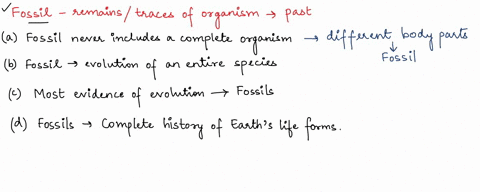 ✓Fossil - remains/traces of organism → past
(a) Fossil never includes a complete organism → different body parts
↓
Fossil
(b) Fossil → evolution of an entire species
(c) Most evidence of evolution → Fossils
(d) Fossils → Complete history of Earth's life forms.